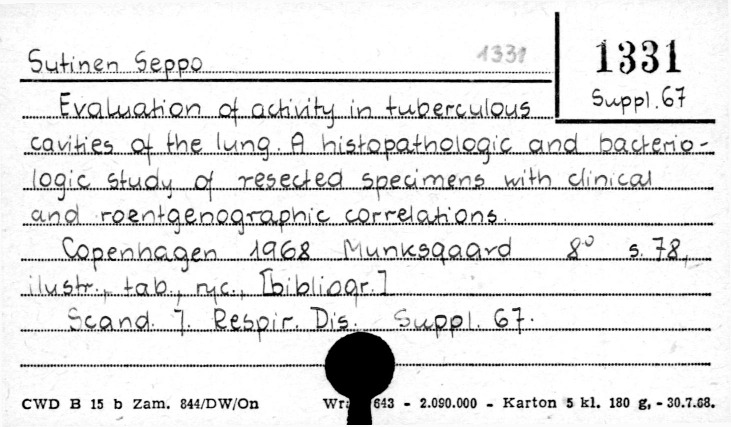 Sutinen Seppo 1331 1331
Suppl. 67
Evaluation of activity in tuberculous
cavities of the lung. A histopathologic and bacterio-
logic study of resected specimens with clinical
and roentgenographic correlations.
Copenhagen 1968 Munksgaard 8° s. 78,
ilustr., tab., ryc., [bibliogr.]
Scand. J. Respir. Dis. Suppl. 67.
CWD B 15 b Zam. 844/DW/On 643 - 2.090.000 - Karton 5 kl. 180 g, - 30.7.68.